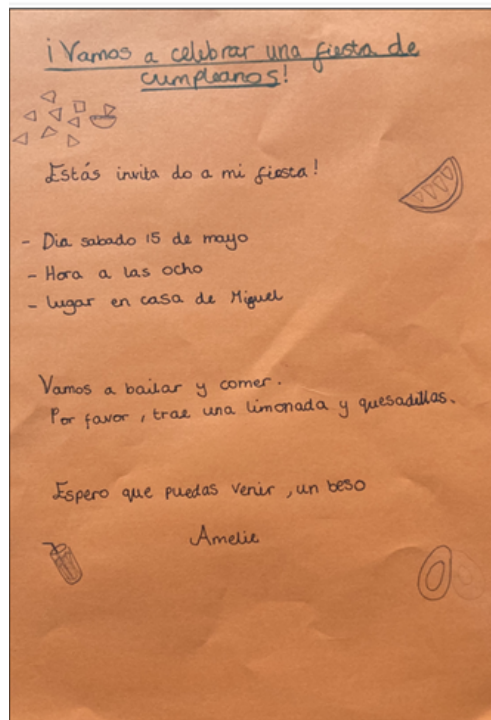 ¡Vamos a celebrar una fiesta de
cumpleanos!
Estás invita do a mi fiesta!
- Dia sabado 15 de mayo
- Hora a las ocho
- lugar en casa de Miguel
Vamos a bailar y comer.
Por favor, trae una limonada y quesadillas.
Espero que puedas venir, un beso
Amelie